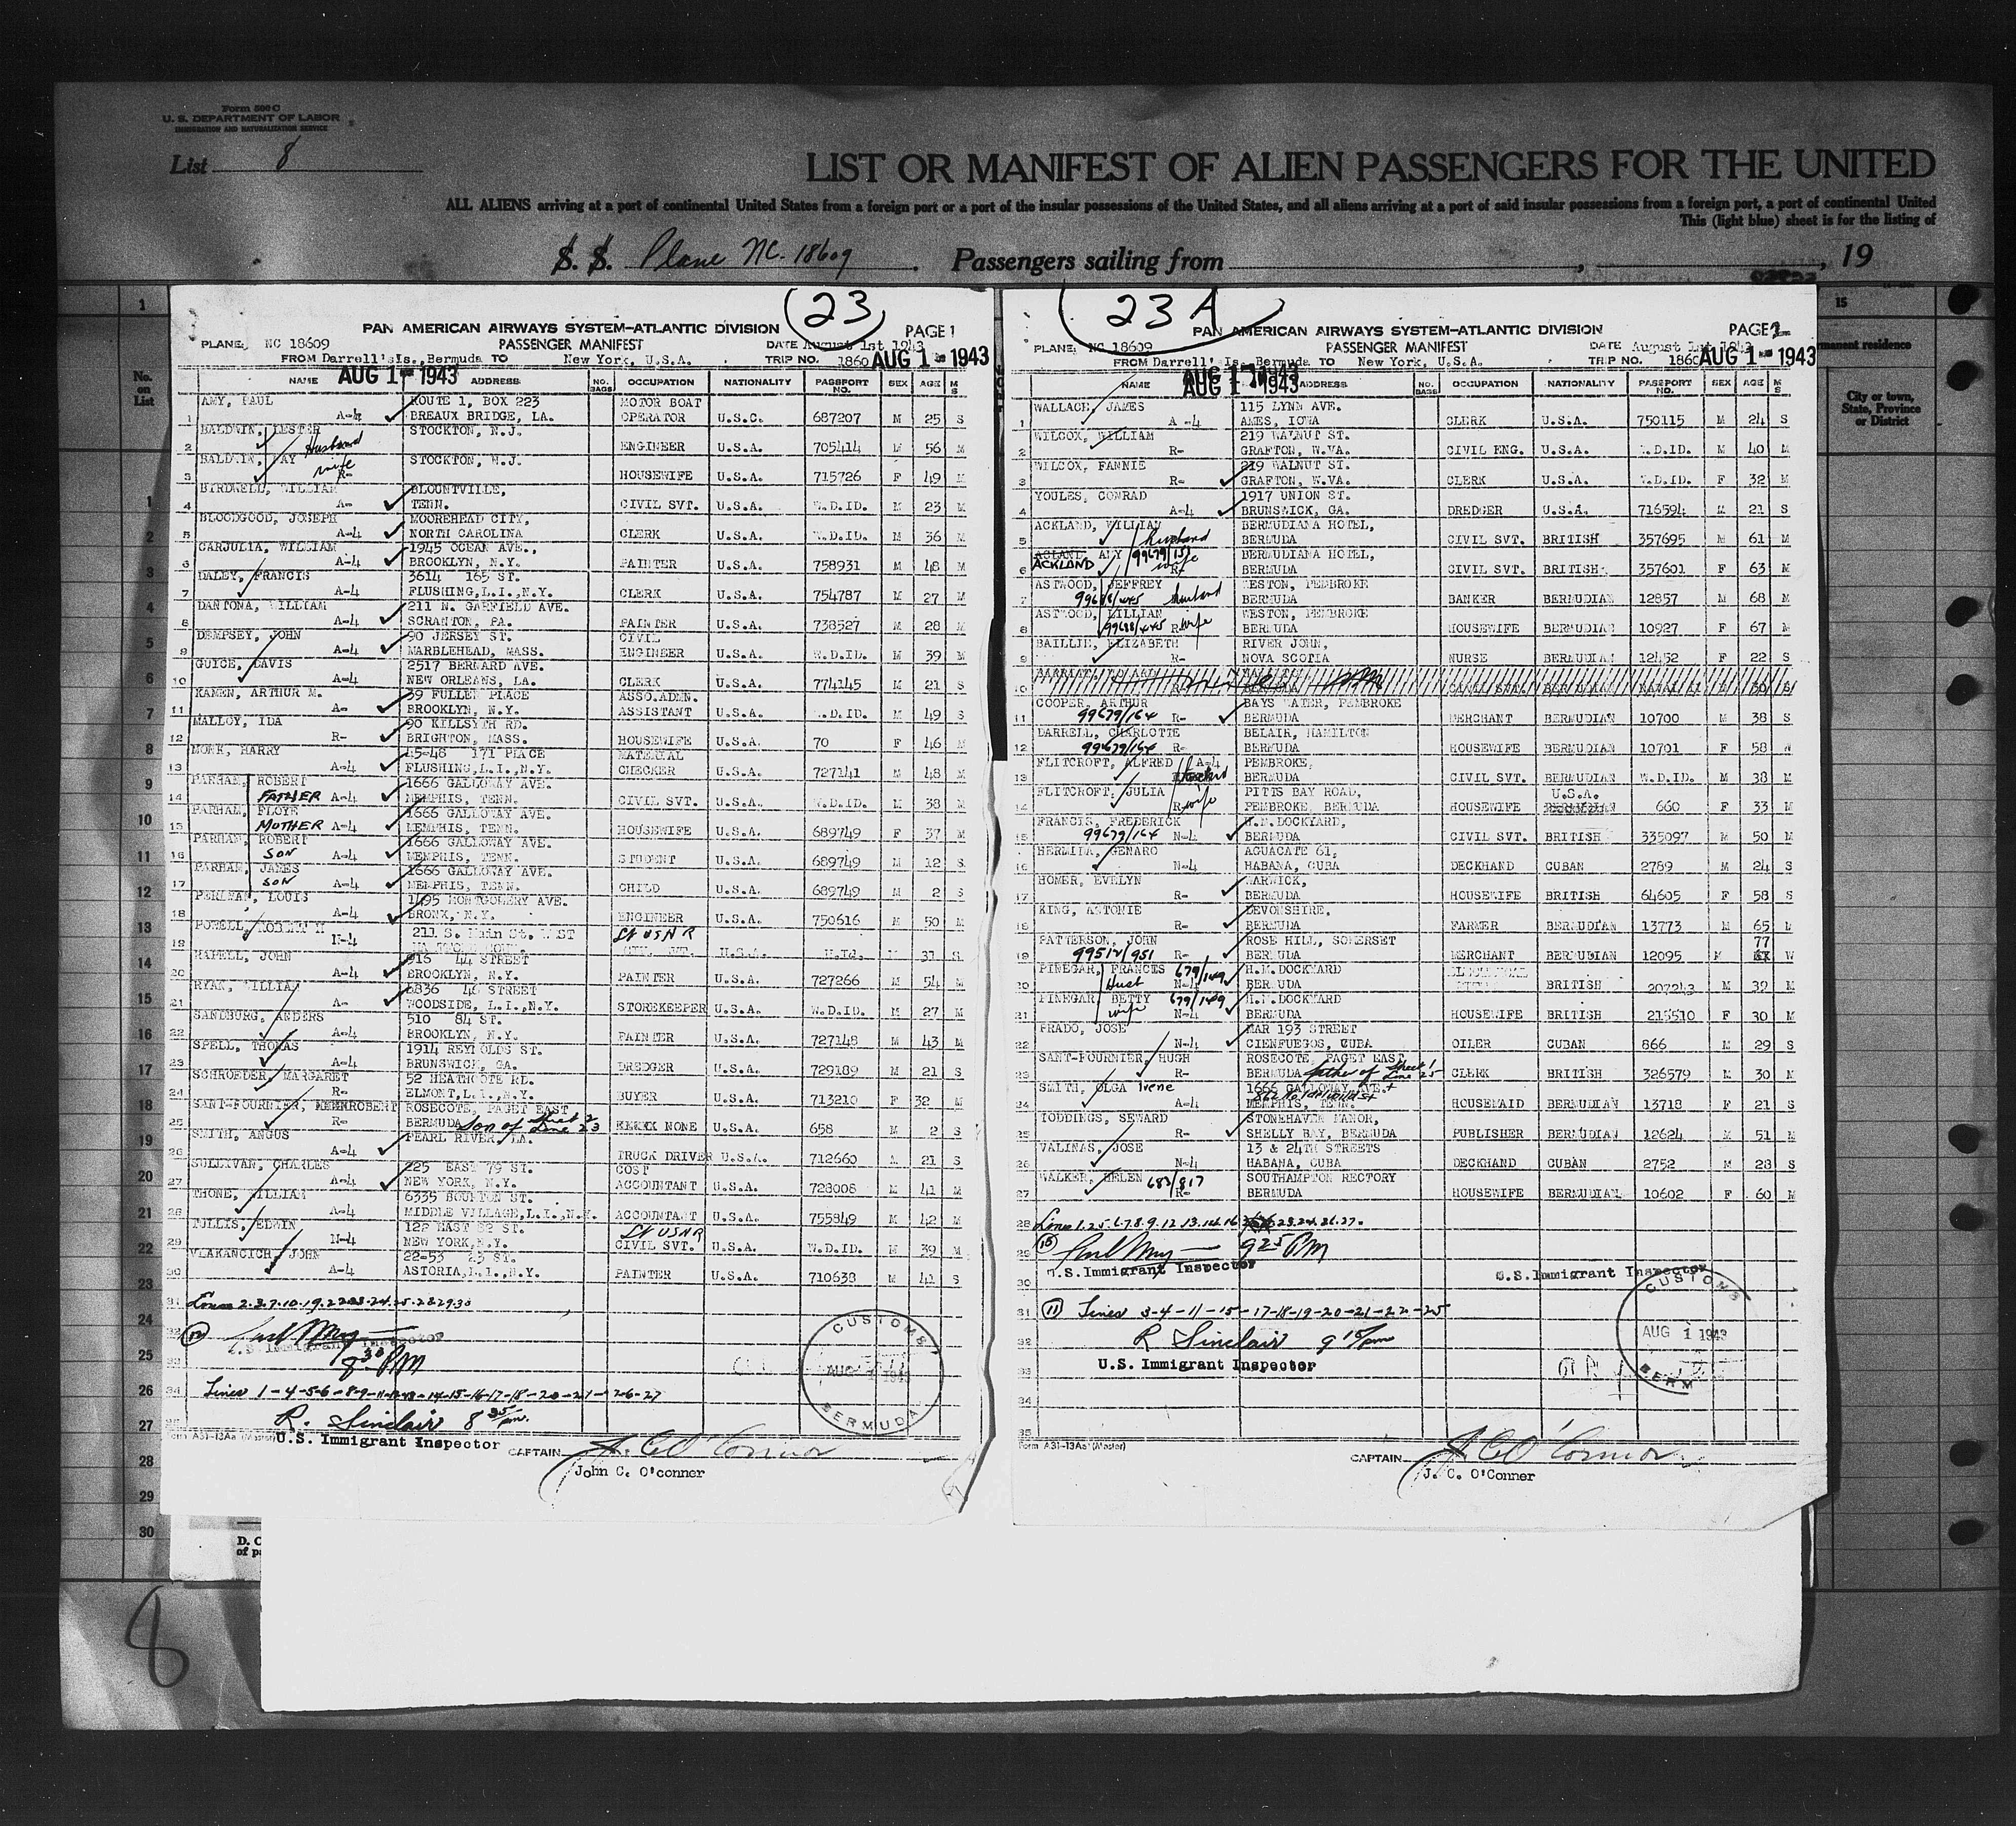 Form 500 C
U. S. DEPARTMENT OF LABOR
IMMIGRATION AND NATURALIZATION SERVICE
List 8
LIST OR MANIFEST OF ALIEN PASSENGERS FOR THE UNITED
ALL ALIENS arriving at a port of continental United States from a foreign port or a port of the insular possessions of the United States, and all aliens arriving at a port of said insular possessions from a foreign port, a port of continental United
This (light blue) sheet is for the listing of
S. S. Plane NC. 18609 . Passengers sailing from , , 19
23
PAN AMERICAN AIRWAYS SYSTEM-ATLANTIC DIVISION PAGE 1
PLANE: NC 18609 PASSENGER MANIFEST DATE August 1st 1943
FROM Darrell's Is., Bermuda TO New York, U.S.A. TRIP NO. 1860 AUG 1 1943
AUG 1 1943
NAME ADDRESS NO. BAGS OCCUPATION NATIONALITY PASSPORT NO. SEX AGE M S
AMY, PAUL ROUTE 1, BOX 223 MOTOR BOAT
1 A-4 BREAUX BRIDGE, LA. OPERATOR U.S.C. 687207 M 25 S
BALDWIN, LESTER STOCKTON, N.J.
2 Husband ENGINEER U.S.A. 705414 M 56 M
BALDWIN, MAY wife STOCKTON, N.J.
3 R- HOUSEWIFE U.S.A. 715726 F 49 M
BIRDWELL, WILLIAM BLOUNTVILLE,
4 A- TENN. CIVIL SVT. U.S.A. W.D.ID. M 23 M
BLOODGOOD, JOSEPH MOOREHEAD CITY,
5 A-4 NORTH CAROLINA CLERK U.S.A. W.D.ID. M 36 M
CARJULIA, WILLIAM 1945 OCEAN AVE.,
6 A-4 BROOKLYN, N.Y. PAINTER U.S.A. 758931 M 48 M
DALEY, FRANCIS 3614 165 ST.
7 A-4 FLUSHING, L.I., N.Y. CLERK U.S.A. 754787 M 27 M
DANTONA, WILLIAM 211 N. GARFIELD AVE.
8 A-4 SCRANTON, PA. PAINTER U.S.A. 738527 M 28 M
DEMPSEY, JOHN 90 JERSEY ST. CIVIL
9 A-4 MARBLEHEAD, MASS. ENGINEER U.S.A. W.D.ID. M 39 M
GUICE, DAVIS 2517 BERNARD AVE.
10 A-4 NEW ORLEANS, LA. CLERK U.S.A. 774145 M 21 S
KAMEN, ARTHUR M. 39 FULLER PLACE ASSO.ADEN.
11 A- BROOKLYN, N.Y. ASSISTANT U.S.A. W.D.ID. M 49 S
MALLOY, IDA 90 KILLSYTH RD.
12 R- BRIGHTON, MASS. HOUSEWIFE U.S.A. 70 F 46 M
MONK, HARRY 45-48 171 PLACE MATERIAL
13 A-4 FLUSHING, L.I., N.Y. CHECKER U.S.A. 727141 M 48 M
PARHAM, ROBERT 1666 GALLOWAY AVE.
14 FATHER A-4 MEMPHIS, TENN. CIVIL SVT. U.S.A. W.D.ID. M 38 M
PARHAM, FLOYE 1666 GALLOWAY AVE.
15 MOTHER A-4 MEMPHIS, TENN. HOUSEWIFE U.S.A. 689749 F 37 M
PARHAM, ROBERT 1666 GALLOWAY AVE.
16 SON A-4 MEMPHIS, TENN. STUDENT U.S.A. 689749 M 12 S
PARHAM, JAMES 1666 GALLOWAY AVE.
17 SON A-4 MEMPHIS, TENN. CHILD U.S.A. 689749 M 2 S
PERLMAN, LOUIS 1495 MONTGOMERY AVE.
18 A-4 BRONX, N.Y. ENGINEER U.S.A. 750616 M 50 M
POWELL, ROBERT M 211 S. Main St. WEST Lt USNR
19 N-4 U.S.A. 31 S
HAPELL, JOHN 916 44 STREET
20 A-4 BROOKLYN, N.Y. PAINTER U.S.A. 727266 M 54 M
RYAN, WILLIAM 5836 46 STREET
21 A- WOODSIDE, L.I., N.Y. STOREKEEPER U.S.A. W.D.ID. M 27 M
SANDBURG, ANDERS 510 84 ST.
22 A-4 BROOKLYN, N.Y. PAINTER U.S.A. 727148 M 43 M
SPELL, THOMAS 1914 REYNOLDS ST.
23 A-4 BRUNSWICK, GA. DREDGER U.S.A. 729189 M 21 S
SCHROEDER, MARGARET 52 HEATHCOTE RD.
24 R- ELMONT, L.I., N.Y. BUYER U.S.A. 713210 F 32 M
SANT-FOURNIER, ROBERT ROSECOTE, PAGET EAST
25 R- BERMUDA Son of sheet 2 Line 23 NONE U.S.A. 658 M 2 S
SMITH, ANGUS PEARL RIVER, LA.
26 A-4 TRUCK DRIVER U.S.A. 712660 M 21 S
SULLIVAN, CHARLES 225 EAST 79 ST. COST
27 A-4 NEW YORK, N.Y. ACCOUNTANT U.S.A. 728008 M 41 M
THONE, WILLIAM 6335 BOURTON ST.
28 MIDDLE VILLAGE, L.I., N.Y. ACCOUNTANT U.S.A. 755849 M 42 M
TULLIS, EDWIN 122 EAST 82 ST. Lt USNR
29 N-4 NEW YORK, N.Y. CIVIL SVT. U.S.A. W.D.ID. M 39 M
VLAKANCICH, JOHN 22-53 23 ST.
30 A-4 ASTORIA, L.I., N.Y. PAINTER U.S.A. 710638 M 41 S
31 Lines 2-3-7-10-19-22-23-24-25-28-29-30
32 12
U.S. Immigrant Inspector
33 8 30 PM
34 Lines 1-4-5-6-8-9-11-12-13-14-15-16-17-18-20-21-26-27
R. Sinclair 8 35 pm.
35
Form A31-13Aa (Master) U.S. Immigrant Inspector CAPTAIN J. C. O'Connor
John C. O'conner
CUSTOMS AUG 1 1943 BERMUDA
23 A
PAN AMERICAN AIRWAYS SYSTEM-ATLANTIC DIVISION PAGE 2
PLANE: NC 18609 PASSENGER MANIFEST DATE August 1st 1943
FROM Darrell's Is. Bermuda TO New York, U.S.A. TRIP NO. 1860 AUG 1 1943
AUG 1 1943
NAME ADDRESS NO. BAGS OCCUPATION NATIONALITY PASSPORT NO. SEX AGE M S
WALLACE, JAMES 115 LYNN AVE.
1 A-4 AMES, IOWA CLERK U.S.A. 750115 M 24 S
WILCOX, WILLIAM 219 WALNUT ST.
2 R- GRAFTON, W.VA. CIVIL ENG. U.S.A. W.D.ID. M 40 M
WILCOX, FANNIE 219 WALNUT ST.
3 R- GRAFTON, W.VA. CLERK U.S.A. W.D.ID. F 32 M
YOULES, CONRAD 1917 UNION ST.
4 A-4 BRUNSWICK, GA. DREDGER U.S.A. 716594 M 21 S
ACKLAND, WILLIAM BERMUDIANA HOTEL,
5 husband BERMUDA CIVIL SVT. BRITISH 357695 M 61 M
ACLAND, AMY 99679/151 BERMUDIANA HOTEL,
6 ACKLAND wife R- BERMUDA CIVIL SVT. BRITISH 357601 F 63 M
ASTWOOD, JEFFREY WESTON, PEMBROKE
7 99688/445 Husband BERMUDA BANKER BERMUDIAN 12857 M 68 M
ASTWOOD, LILLIAN WESTON, PEMBROKE
8 99688/445 R- wife BERMUDA HOUSEWIFE BERMUDIAN 10927 F 67 M
BAILLIE, ELIZABETH RIVER JOHN,
9 R- NOVA SCOTIA NURSE BERMUDIAN 12452 F 22 S
10 BERMUDA CIVIL SVT. BERMUDIAN M 30 S
COOPER, ARTHUR BAYS WATER, PEMBROKE
11 99679/164 R- BERMUDA MERCHANT BERMUDIAN 10700 M 38 S
DARRELL, CHARLOTTE BELAIR, HAMILTON
12 99679/164 R- BERMUDA HOUSEWIFE BERMUDIAN 10701 F 58 W
FLITCROFT, ALFRED A-4 PEMBROKE,
13 Husband BERMUDA CIVIL SVT. BERMUDIAN W.D.ID. M 38 M
FLITCROFT, JULIA PITTS BAY ROAD, U.S.A.
14 R- wife PEMBROKE, BERMUDA HOUSEWIFE BERMUDIAN 660 F 33 M
FRANCIS, FREDERICK H.M. DOCKYARD,
15 99679/164 N-4 BERMUDA CIVIL SVT. BRITISH 335097 M 50 M
HERMIDA, GENARO AGUACATE 61,
16 N-4 HABANA, CUBA DECKHAND CUBAN 2789 M 24 S
HOMER, EVELYN WARWICK,
17 R- BERMUDA HOUSEWIFE BRITISH 64605 F 58 S
KING, ANTONIE DEVONSHIRE,
18 R- BERMUDA FARMER BERMUDIAN 13773 M 65 M
PATTERSON, JOHN ROSE HILL, SOMERSET 77
19 99512/951 R- BERMUDA MERCHANT BERMUDIAN 12095 M W
PINEGAR, FRANCES 679/149 H.M. DOCKYARD
20 Hust N-4 BERMUDA BRITISH 207243 M 39 M
PINEGAR, BETTY 679/149 H.M. DOCKYARD
21 wife N-4 BERMUDA HOUSEWIFE BRITISH 215510 F 30 M
PRADO, JOSE MAR 193 STREET
22 N-4 CIENFUEGOS, CUBA OILER CUBAN 866 M 29 S
SANT-FOURNIER, HUGH ROSECOTE, PAGET EAST
23 R- BERMUDA father of sheet 1 Line 25 CLERK BRITISH 326579 M 30 M
SMITH, OLGA Irene 1666 GALLOWAY AVE.
24 A-4 MEMPHIS, TENN. HOUSEMAID BERMUDIAN 13718 F 21 S
TODDINGS, SEWARD STONEHAVEN MANOR,
25 R- SHELLY BAY, BERMUDA PUBLISHER BERMUDIAN 12624 M 51 M
VALINAS, JOSE 13 & 24TH STREETS
26 N-4 HABANA, CUBA DECKHAND CUBAN 2752 M 28 S
WALKER, HELEN 683/817 SOUTHAMPTON RECTORY
27 R- BERMUDA HOUSEWIFE BERMUDIAN 10602 F 60 M
28 Lines 1.2.5.6.7.8.9.12.13.14.16 23.24.26.27.
29 9 25 PM
30 U.S. Immigrant Inspector U.S. Immigrant Inspector
31 11 Lines 3-4-11-15-17-18-19-20-21-22-25
32 R Sinclair 9 15 pm
33 U.S. Immigrant Inspector
34
35
Form A31-13Aa (Master)
CAPTAIN J. C. O'Connor
J. C. O'Conner
CUSTOMS AUG 1 1943 BERM
No. on List
15
permanent residence
City or town, State, Province or District
1
1
2
3
4
5
6
7
8
9
10
11
12
13
14
15
16
17
18
19
20
21
22
23
24
25
26
27
28
29
30
D. C
of pa
8